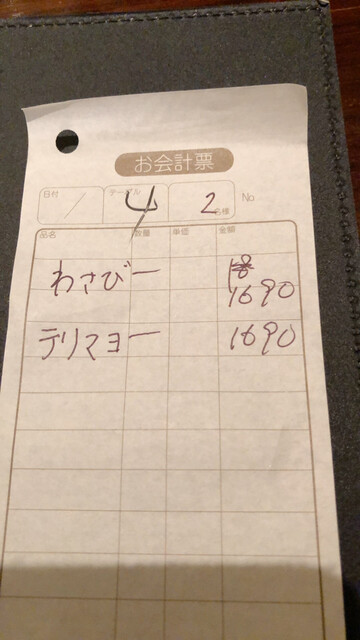 お会計票
日付 / テーブル 4 2 名様 No
品名 数量 単価 金額
わさび 一 1690
テリマヨ 一 1690